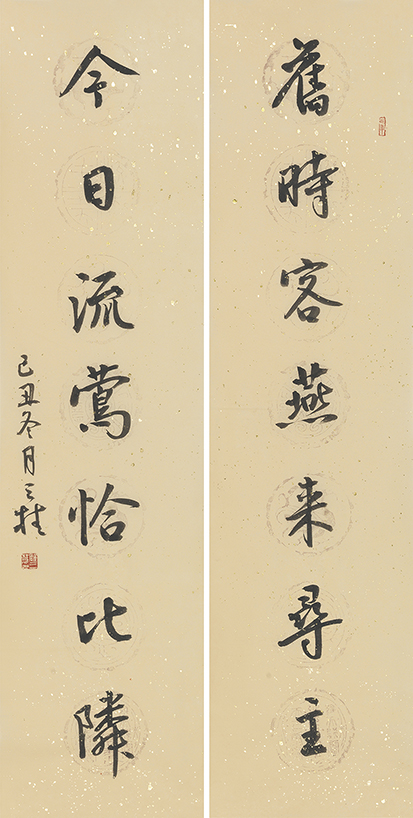 舊時客燕来尋主
今日流鶯恰比隣
己丑冬月之桂